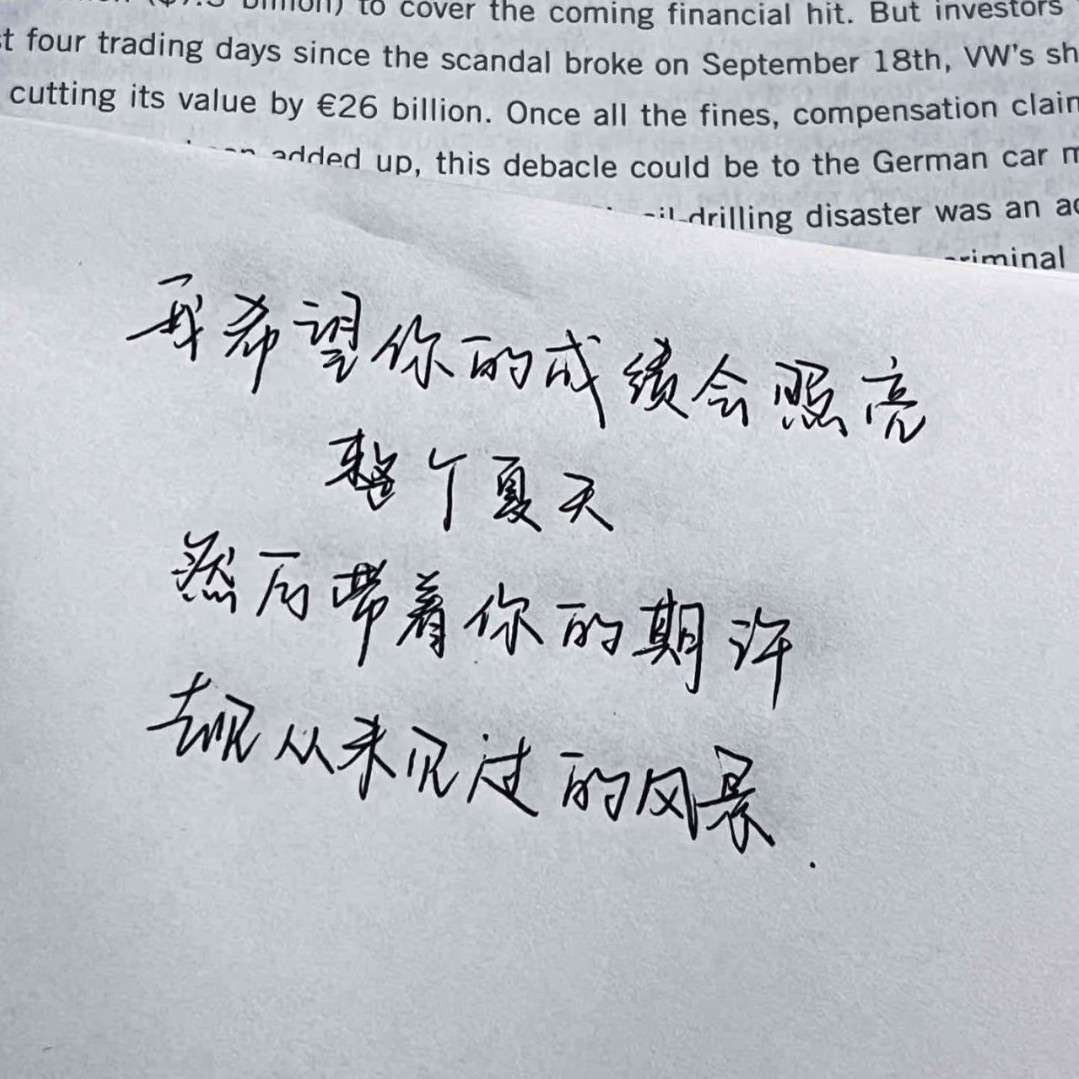 billion) to cover the coming financial hit. But investors
four trading days since the scandal broke on September 18th, VW's
cutting its value by €26 billion. Once all the fines, compensation
added up, this debacle could be to the German car
drilling disaster was an
我希望你的成绩会照亮
整个夏天
然后带着你的期许
去观从未见过的风景.